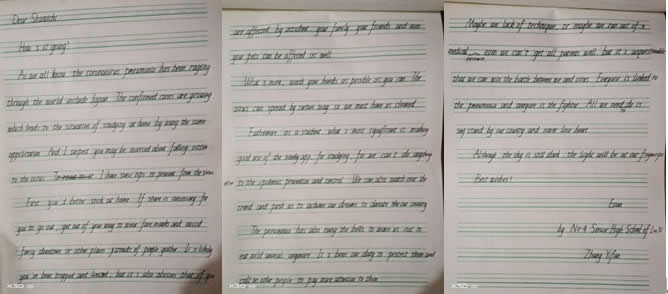 Dear Shunichi
How's it going?
As we all know the coronavirus pneumonia has been raging
through the world include Japan. The confirmed cases are growing
which leads to the situation of studying at home by using the same
application. And I suspect you may be worried about falling victim
to the virus. I have some tips to prevent from the virus
First, you'd better stick at home. If there is necessary for
you to go out, get out of you way to wear face masks and avoid
fancy downtown or other places parades of people gather. It's likely
you've been trapped and but it's also obvious that if you
are affected by accident, your family, your friends and even
your pets can be affected as well.
What's more, wash your hands as possible as you can. The
virus can spread by various ways so we must have us cleaned
Furthermore, as a student, what's most significant is making
good use of the app for studying, for we can't do anything
to the epidemic prevention and control. We can also watch over the
trend and push us to achieve our dreams to our country
The pneumonia has also rung the bells to warn us not to
eat wild animals anymore. It's been our duty to protect them and
call on other people to pay more attention to them.
Maybe we lack of techniques, or maybe we run out of
medical even we can't get all patients well, but it's unquestionable
that we can win the battle between we and virus. Everyone is linked to
the pneumonia and everyone is the fighter. All we need to do is
stand by our country and never lose heart.
Although the sky is still dark, the light will be at our fingertips
Best wishes!
Evan
by No.4 Senior High School of
Zhang Yifan
X30
X30
X30